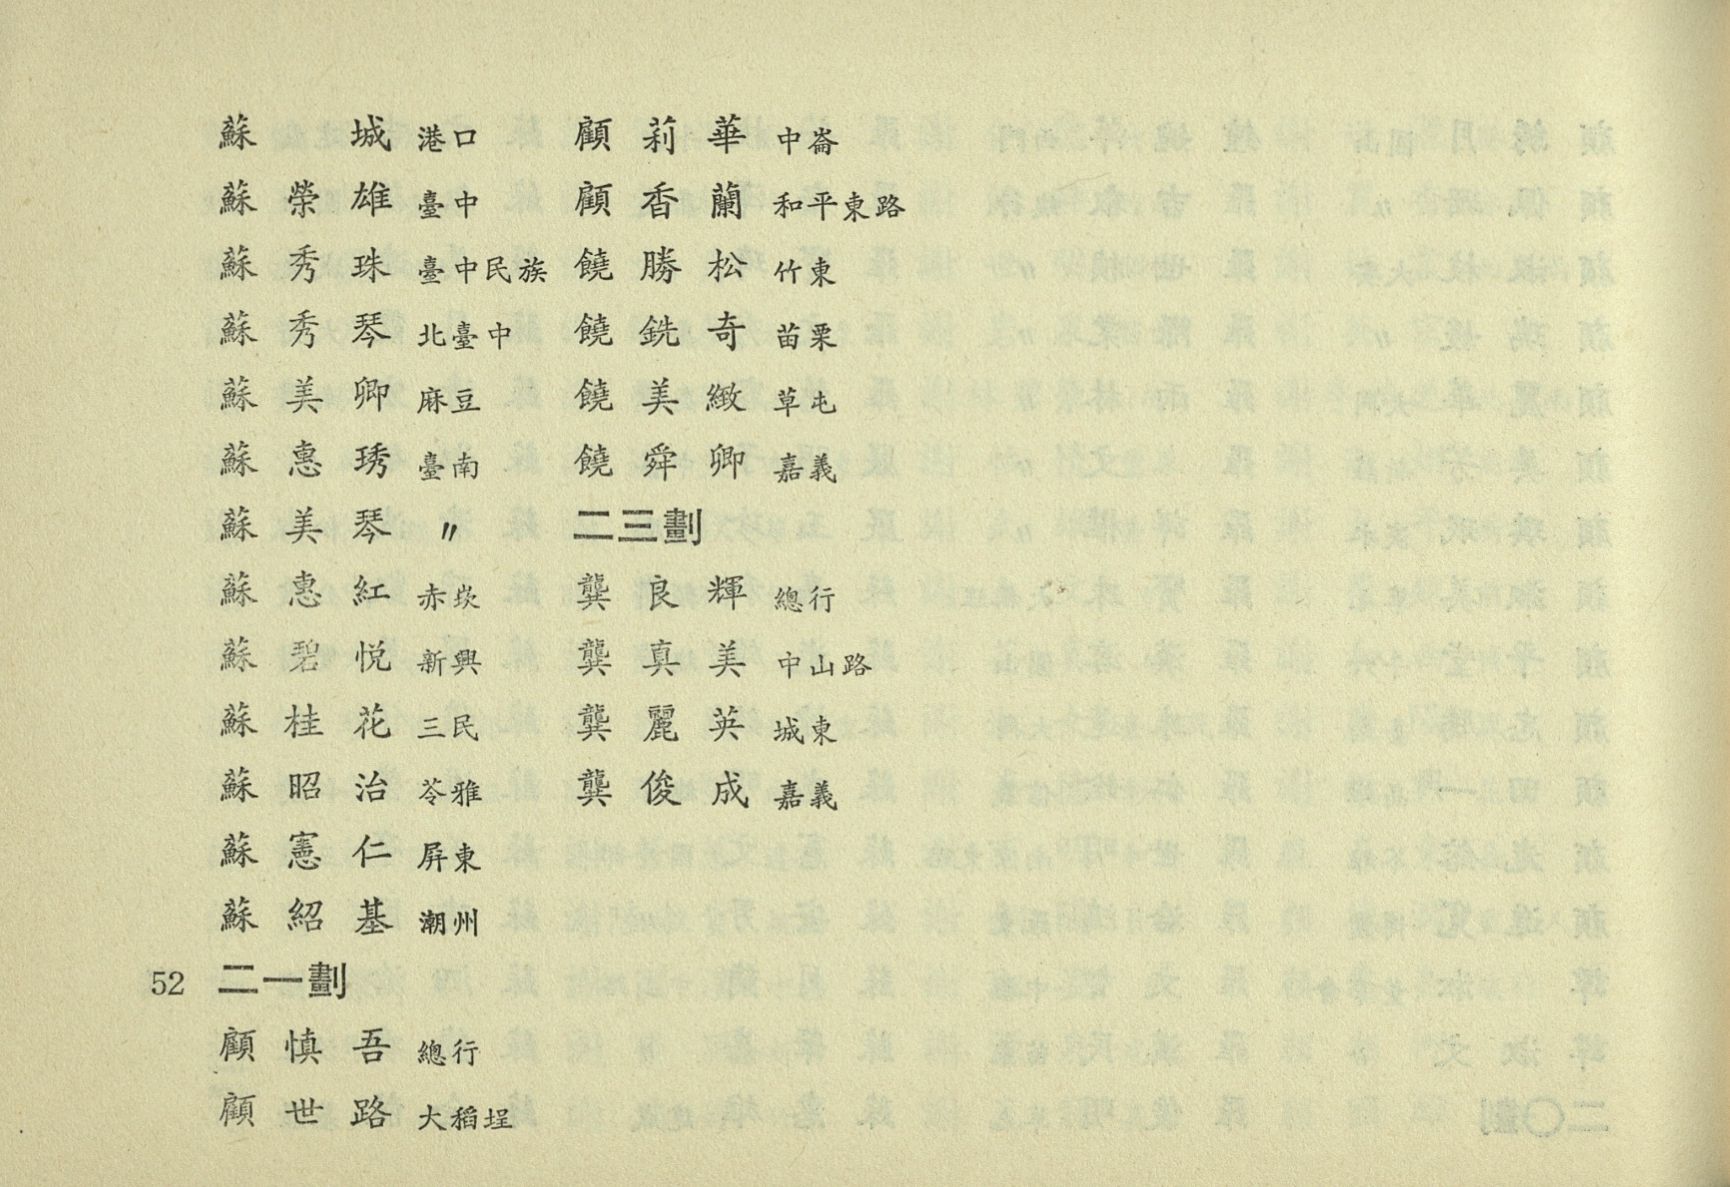 蘇城 港口
蘇榮雄 臺中
蘇秀珠 臺中民族
蘇秀琴 北臺中
蘇美卿 麻豆
蘇惠琇 臺南
蘇美琴 〃
蘇惠紅 赤崁
蘇碧悅 新興
蘇桂花 三民
蘇昭治 苓雅
蘇憲仁 屏東
蘇紹基 潮州
52 二一劃
顧慎吾 總行
顧世路 大稻埕
顧莉華 中崙
顧香蘭 和平東路
饒勝松 竹東
饒銑奇 苗栗
饒美緻 草屯
饒舜卿 嘉義
二三劃
龔良輝 總行
龔真美 中山路
龔麗英 城東
龔俊成 嘉義